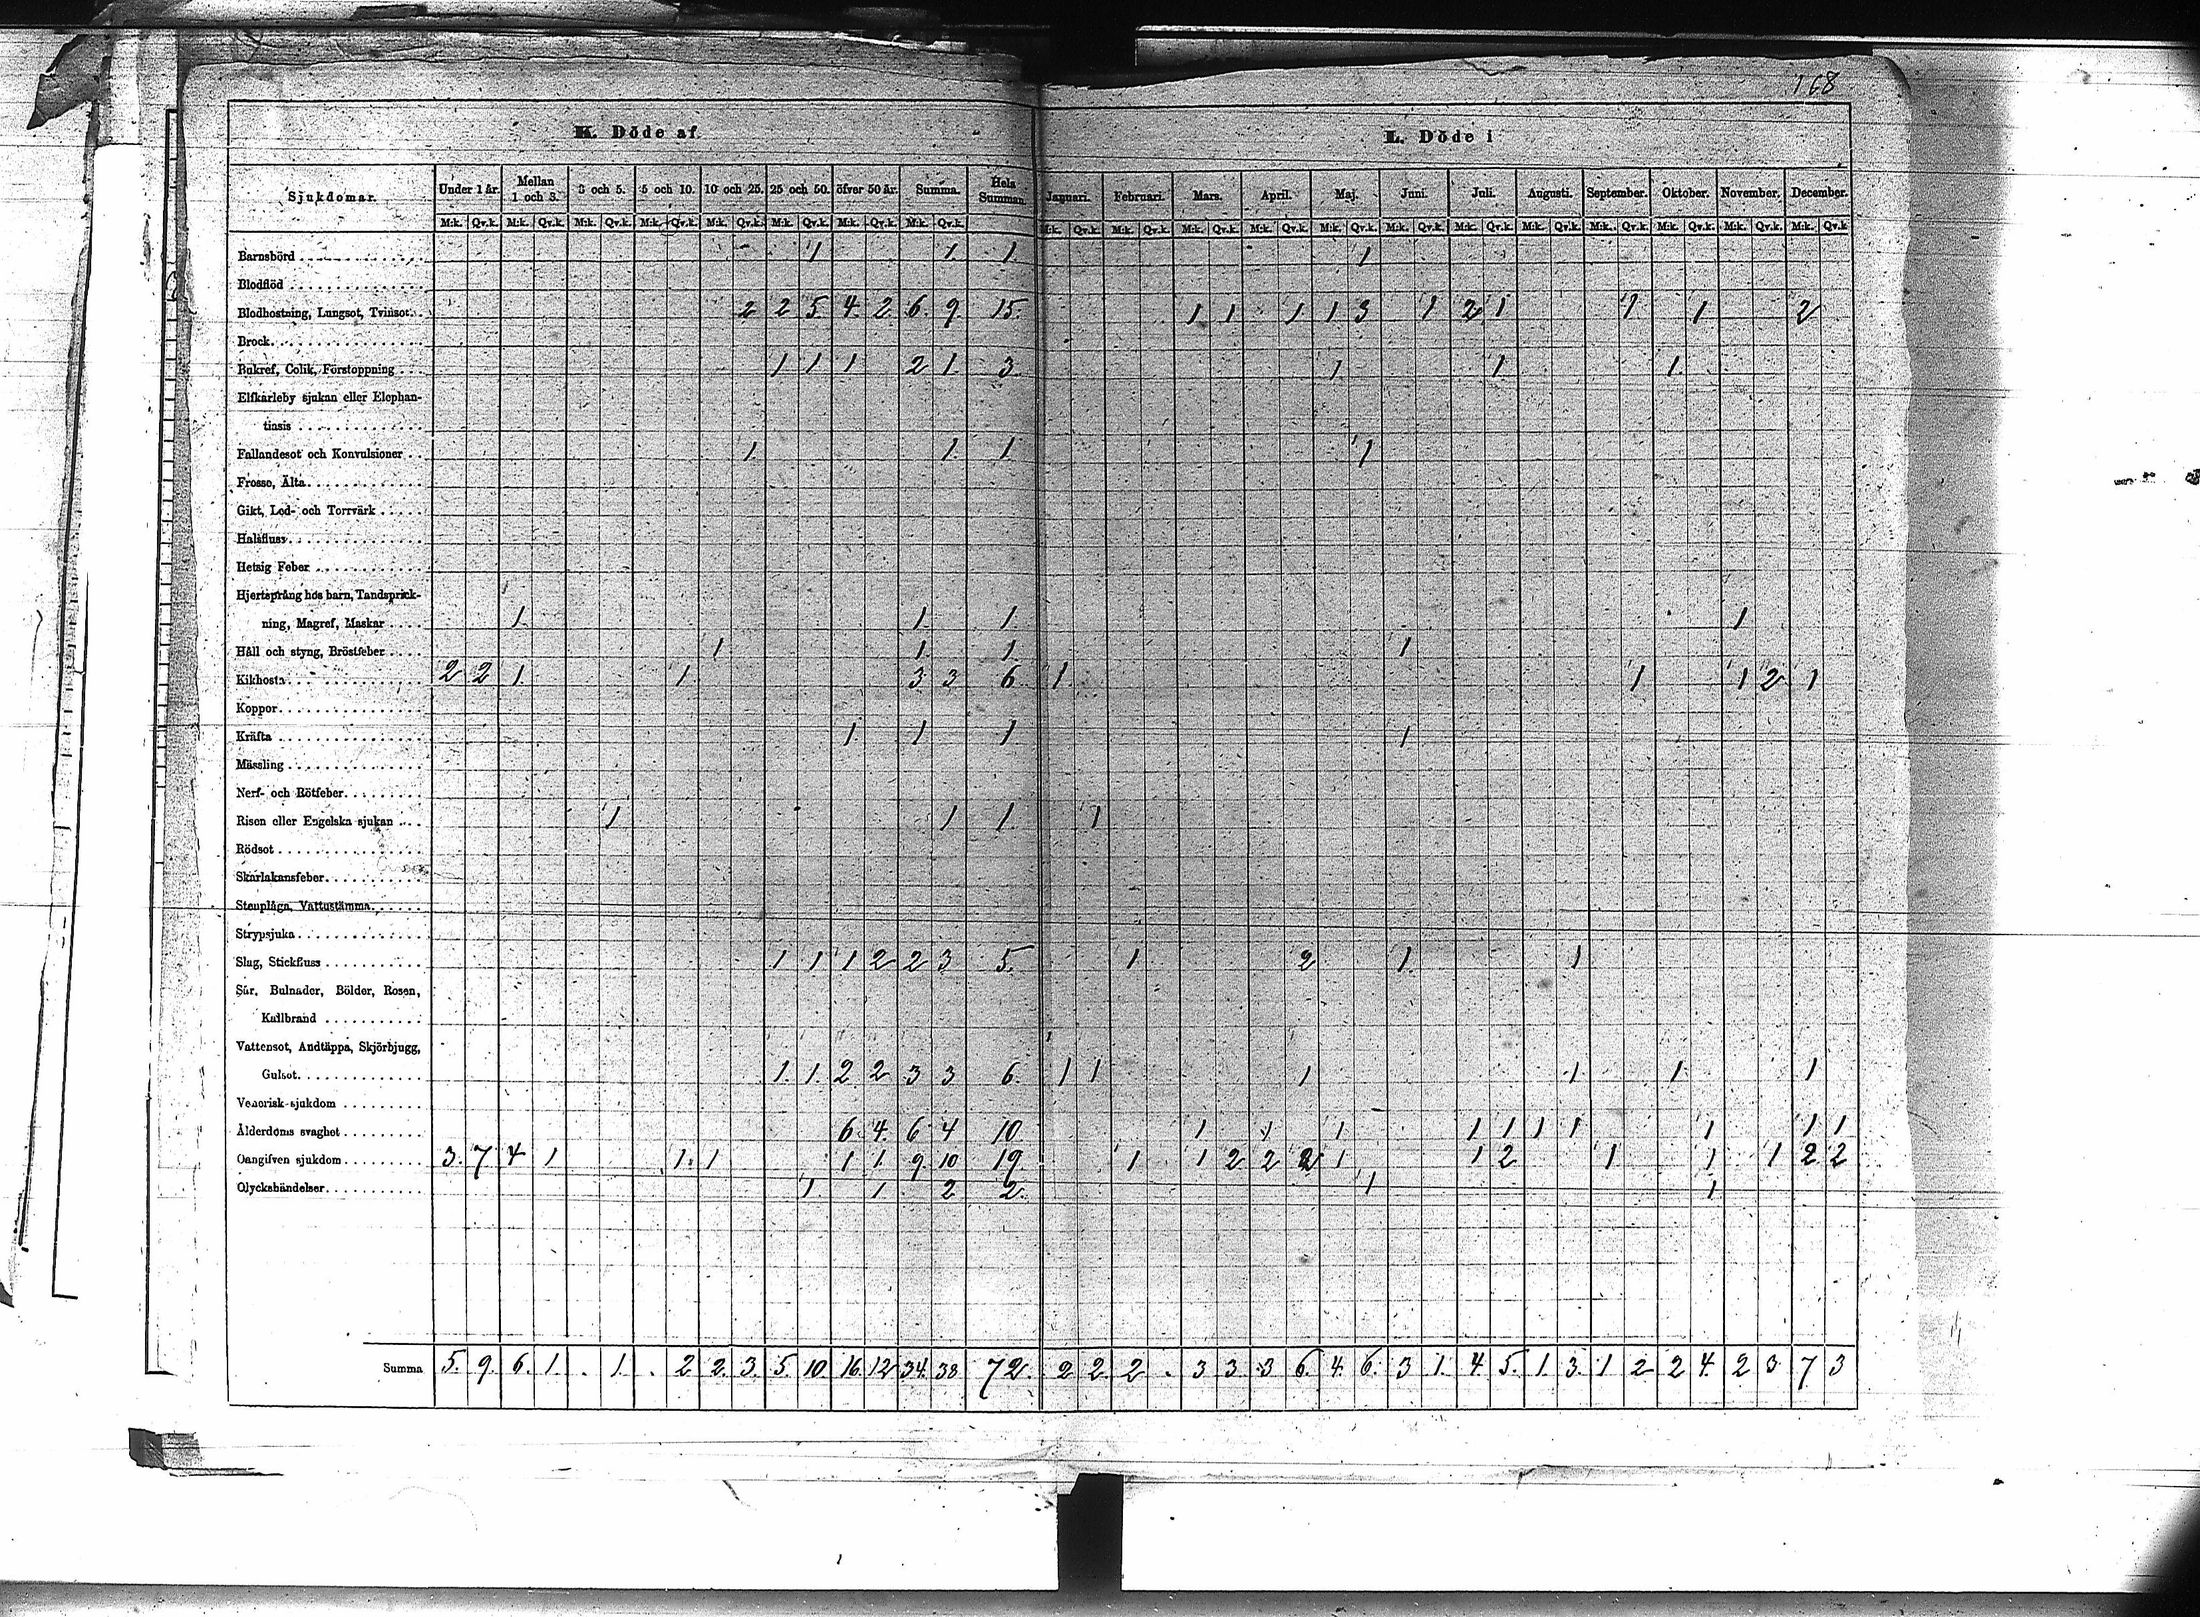 168
K. Döde af
L. Döde i
Sjukdomar. Under 1 år. Mellan 1 och 3. 3 och 5. 5 och 10. 10 och 25. 25 och 50. öfver 50 år. Summa. Hela Summan. Januari. Februari. Mars. April. Maj. Juni. Juli. Augusti. September. Oktober. November. December.
M:k. Qv.k. M:k. Qv.k. M:k. Qv.k. M:k. Qv.k. M:k. Qv.k. M:k. Qv.k. M:k. Qv.k. M:k. Qv.k. M:k. Qv.k. M:k. Qv.k. M:k. Qv.k. M:k. Qv.k. M:k. Qv.k. M:k. Qv.k. M:k. Qv.k. M:k. Qv.k. M:k. Qv.k. M:k. Qv.k. M:k. Qv.k. M:k. Qv.k.
Barnsbörd 1 1 1 1
Blodflöd
Blodhostning, Lungsot, Tvinsot 2 2 5 4 2 6 9 15 1 1 1 1 3 1 2 1 1 1 2
Brock
Bukref, Colik, Förstoppning 1 1 1 2 1 3 1 1 1
Elfkarleby sjukan eller Elephan-
tiasis
Fallandesot och Konvulsioner 1 1 1 1
Frosso, Älta
Gikt, Led- och Torrvärk
Halsfluss
Hetsig Feber
Hjertsprång hos barn, Tandsprick-
ning, Magref, Maskar 1 1 1 1
Håll och styng, Bröstfeber 1 1 1 1
Kikhosta 2 2 1 1 3 3 6 1 1 1 2 1
Koppor
Kräfta 1 1 1 1
Mässling
Nerf- och Rötfeber
Risen eller Engelska sjukan 1 1 1 1
Rödsot
Skarlakansfeber
Stenplåga, Vattustämma
Strypsjuka
Slag, Stickfluss 1 1 1 2 2 3 5 1 2 1 1
Sår, Bulnader, Bölder, Rosen,
Kallbrand
Vattensot, Andtäppa, Skjörbjugg,
Gulsot 1 1 2 2 3 3 6 1 1 1 1 1 1
Venerisk sjukdom
Ålderdoms svaghet 6 4 6 4 10 1 1 1 1 1 1 1 1 1 1
Oangifven sjukdom 3 7 4 1 1 1 1 1 9 10 19 1 1 2 2 2 1 1 2 1 1 1 2 2
Olyckshändelser 1 1 2 2 1 1
Summa 5. 9. 6. 1. . 1. . 2 2. 3. 5. 10. 16. 12 34. 38 72. 2 2. 2 . 3 3. 3 6. 4. 6. 3 1. 4. 5. 1. 3. 1 2 2 4. 2 3 7 3